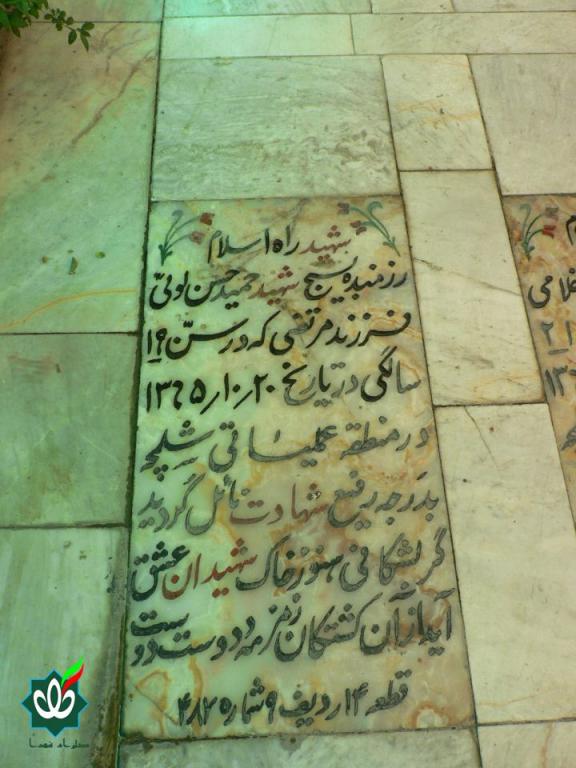 شهید راه اسلام
رزمنده بسیج شهید حمید حسن لوئی
فرزند مرتضی که در سن ۱۹
سالگی در تاریخ ۲۰ر۱۰ر۱۳۶۵
در منطقه عملیاتی شلمچه
بدرجه رفیع شهادت نائل گردید
گر بشکافی هنوز خاک شهیدان عشق
آید از آن کشتگان زمزمه دوست دوست
قطعه ۱۴ ردیف ۹ شماره ۴۸۲